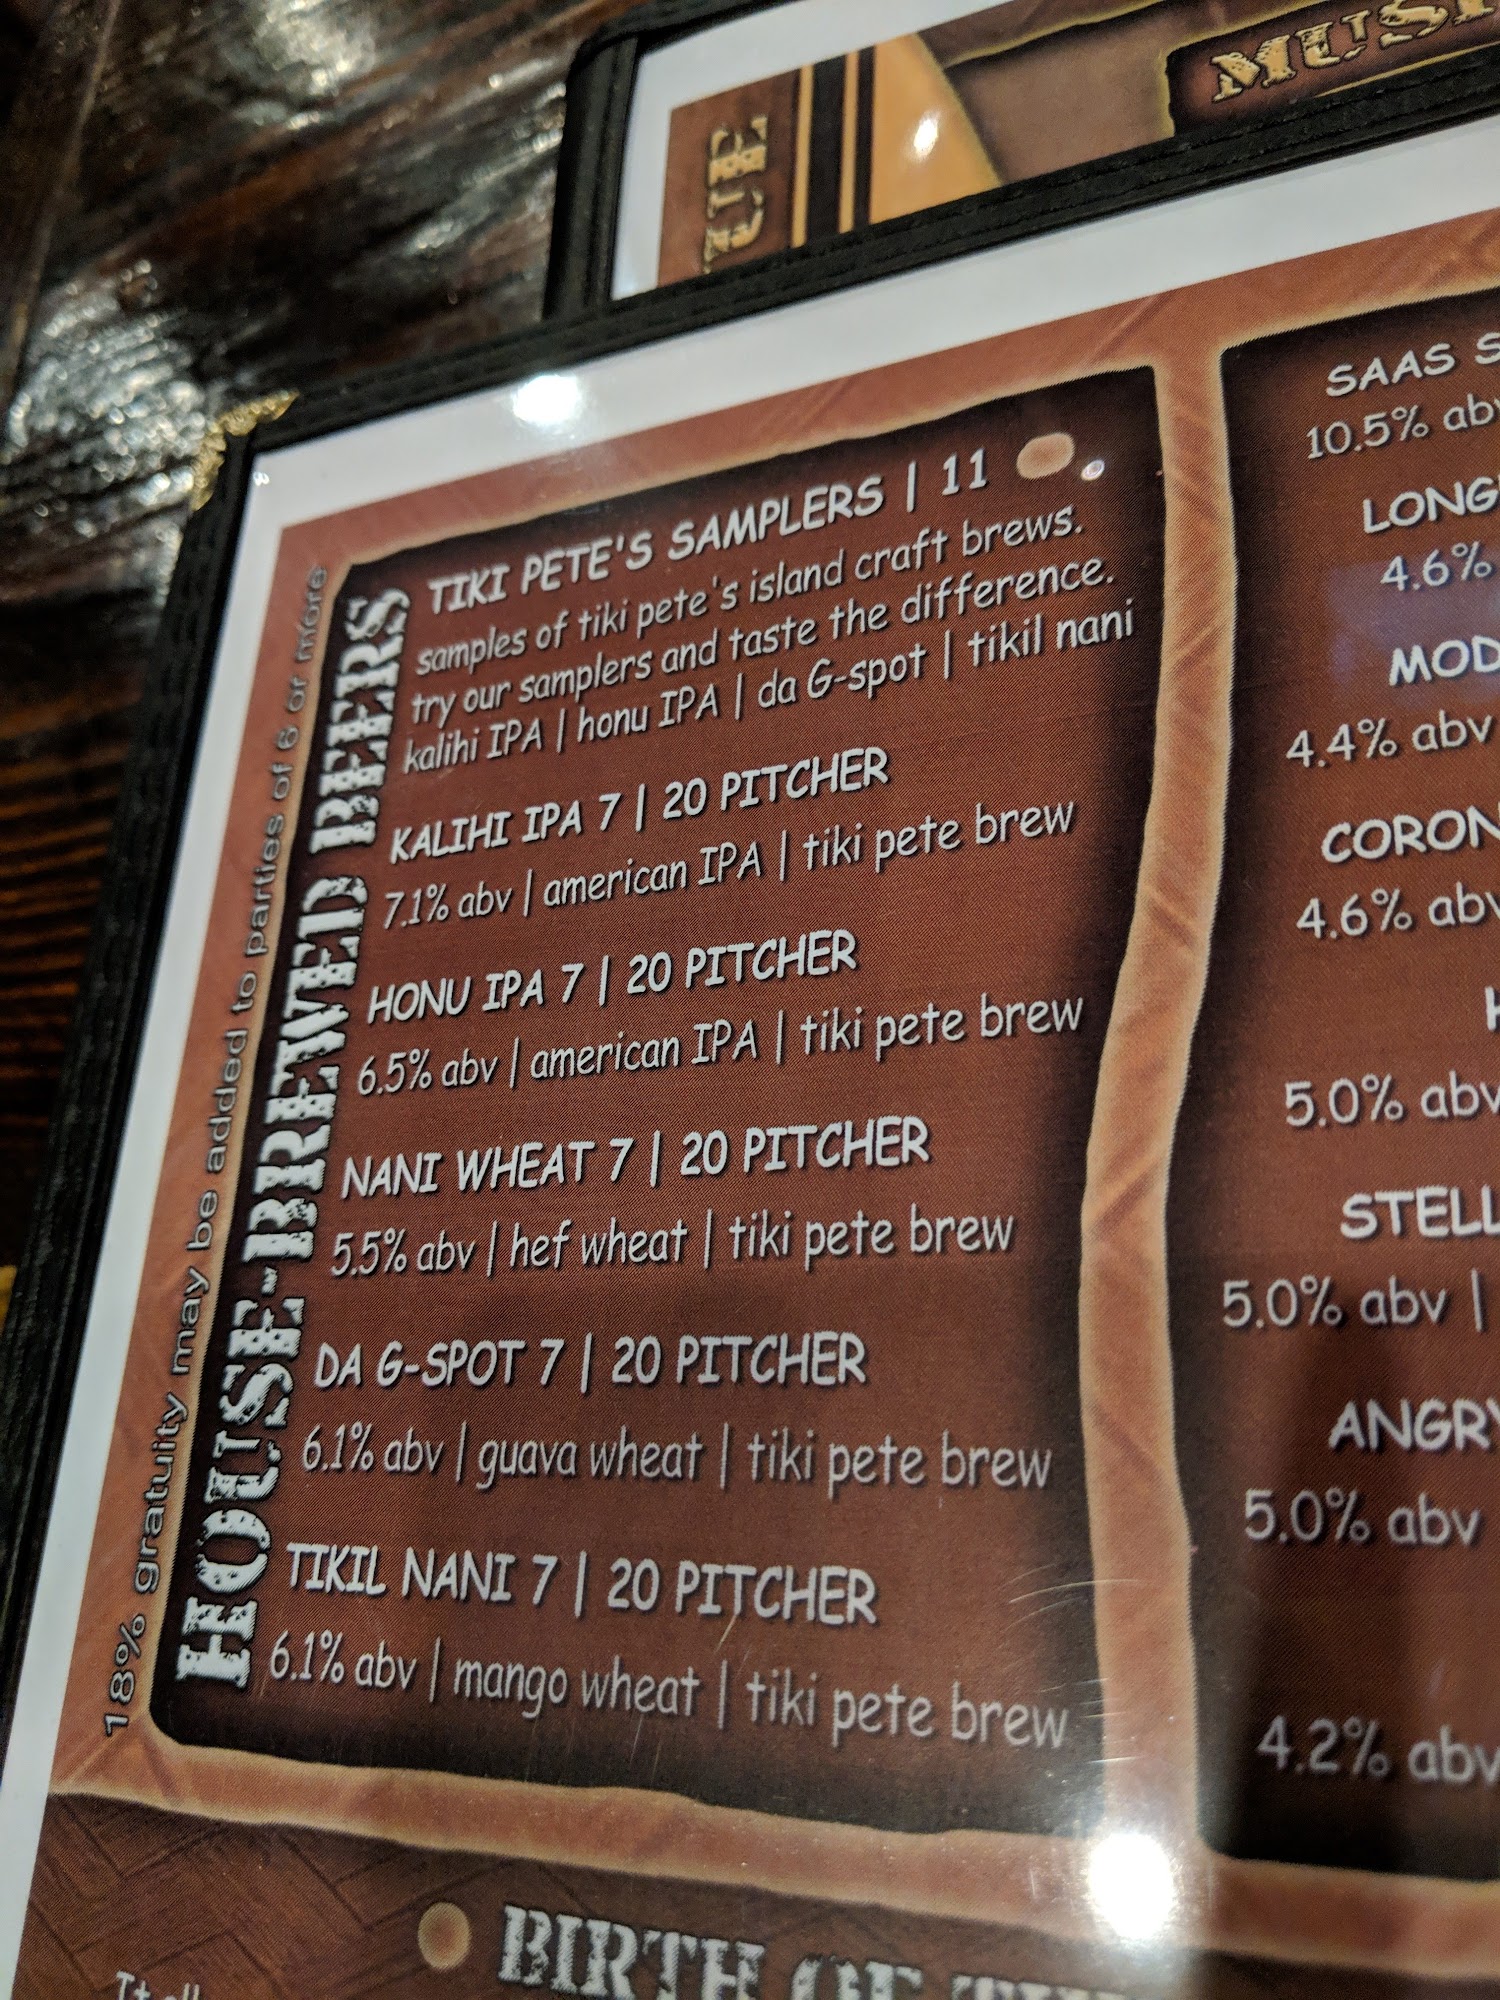 MUSI
18% gratuity may be added to parties of 6 or more
HOUSE-BREWED BEERS
TIKI PETE'S SAMPLERS | 11
samples of tiki pete's island craft brews.
try our samplers and taste the difference.
kalihi IPA | honu IPA | da G-spot | tikil nani
KALIHI IPA 7 | 20 PITCHER
7.1% abv | american IPA | tiki pete brew
HONU IPA 7 | 20 PITCHER
6.5% abv | american IPA | tiki pete brew
NANI WHEAT 7 | 20 PITCHER
5.5% abv | hef wheat | tiki pete brew
DA G-SPOT 7 | 20 PITCHER
6.1% abv | guava wheat | tiki pete brew
TIKIL NANI 7 | 20 PITCHER
6.1% abv | mango wheat | tiki pete brew
SAAS S
10.5% abv
LONG
4.6%
MOD
4.4% abv
CORON
4.6% abv
5.0% abv
STELL
5.0% abv |
ANGRY
5.0% abv
4.2% abv
BIRTH OF